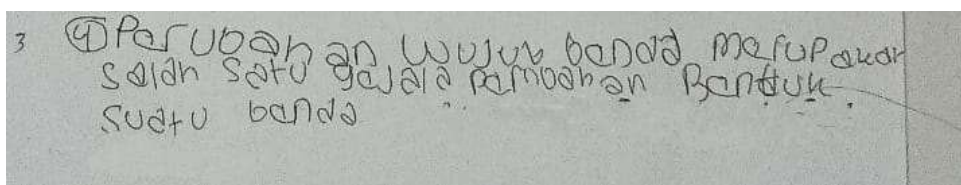 3 ④ Perubahan an wujud benda merupakan
salah satu gejala perubahan Bentuk
suatu benda